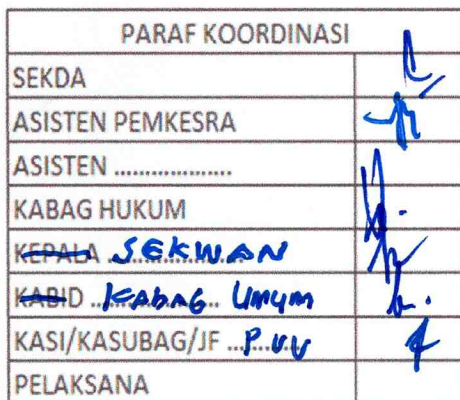 PARAF KOORDINASI
SEKDA
ASISTEN PEMKESRA
ASISTEN ..................
KABAG HUKUM
KEPALA SEKWAN
KABID .................. KABAG UMUM
KASI/KASUBAG/JF ............ P UU
PELAKSANA